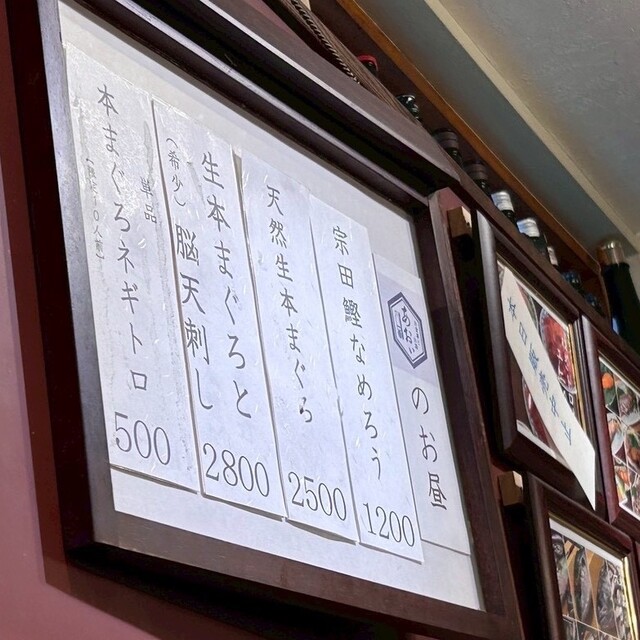 のお昼
宗田鰹なめろう
1200
天然生本まぐろ
2500
生本まぐろと
（希少）脳天刺し
2800
単品
本まぐろネギトロ
500